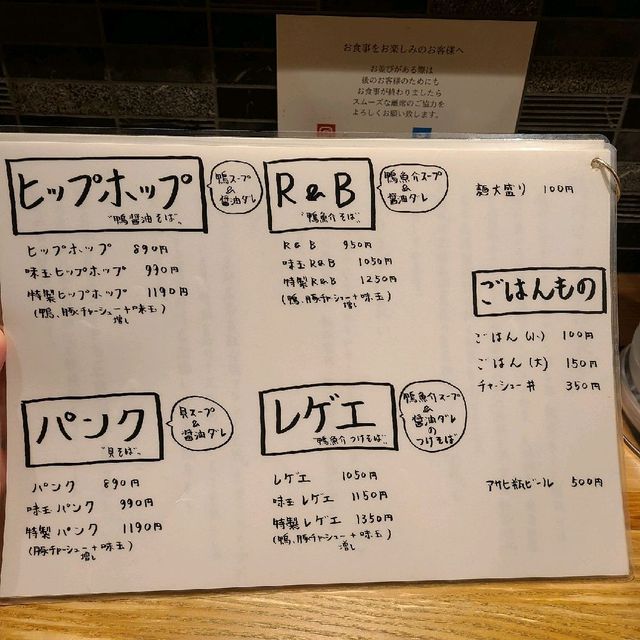 お食事をお楽しみのお客様へ
お並びがある際は
後のお客様のためにも
お食事が終わりましたら
スムーズな離席のご協力を
よろしくお願い致します。
ヒップホップ
"鴨醤油そば"
鴨スープ
&
醤油ダレ
ヒップホップ 890円
味玉ヒップホップ 990円
特製ヒップホップ 1190円
(鴨、豚チャーシュー+味玉)
増し
R&B
"鴨魚介そば"
鴨魚介スープ
&
醤油ダレ
R&B 950円
味玉R&B 1050円
特製R&B 1250円
(鴨、豚チャーシュー+味玉)
増し
麺大盛り 100円
ごはんもの
ごはん(小) 100円
ごはん(大) 150円
チャーシュー丼 350円
パンク
"貝そば"
貝スープ
&
醤油ダレ
パンク 890円
味玉パンク 990円
特製パンク 1190円
(豚チャーシュー+味玉)
増し
レゲエ
"鴨魚介つけそば"
鴨魚介スープ
&
醤油ダレ
の
つけそば
レゲエ 1050円
味玉レゲエ 1150円
特製レゲエ 1350円
(鴨、豚チャーシュー+味玉)
増し
アサヒ瓶ビール 500円